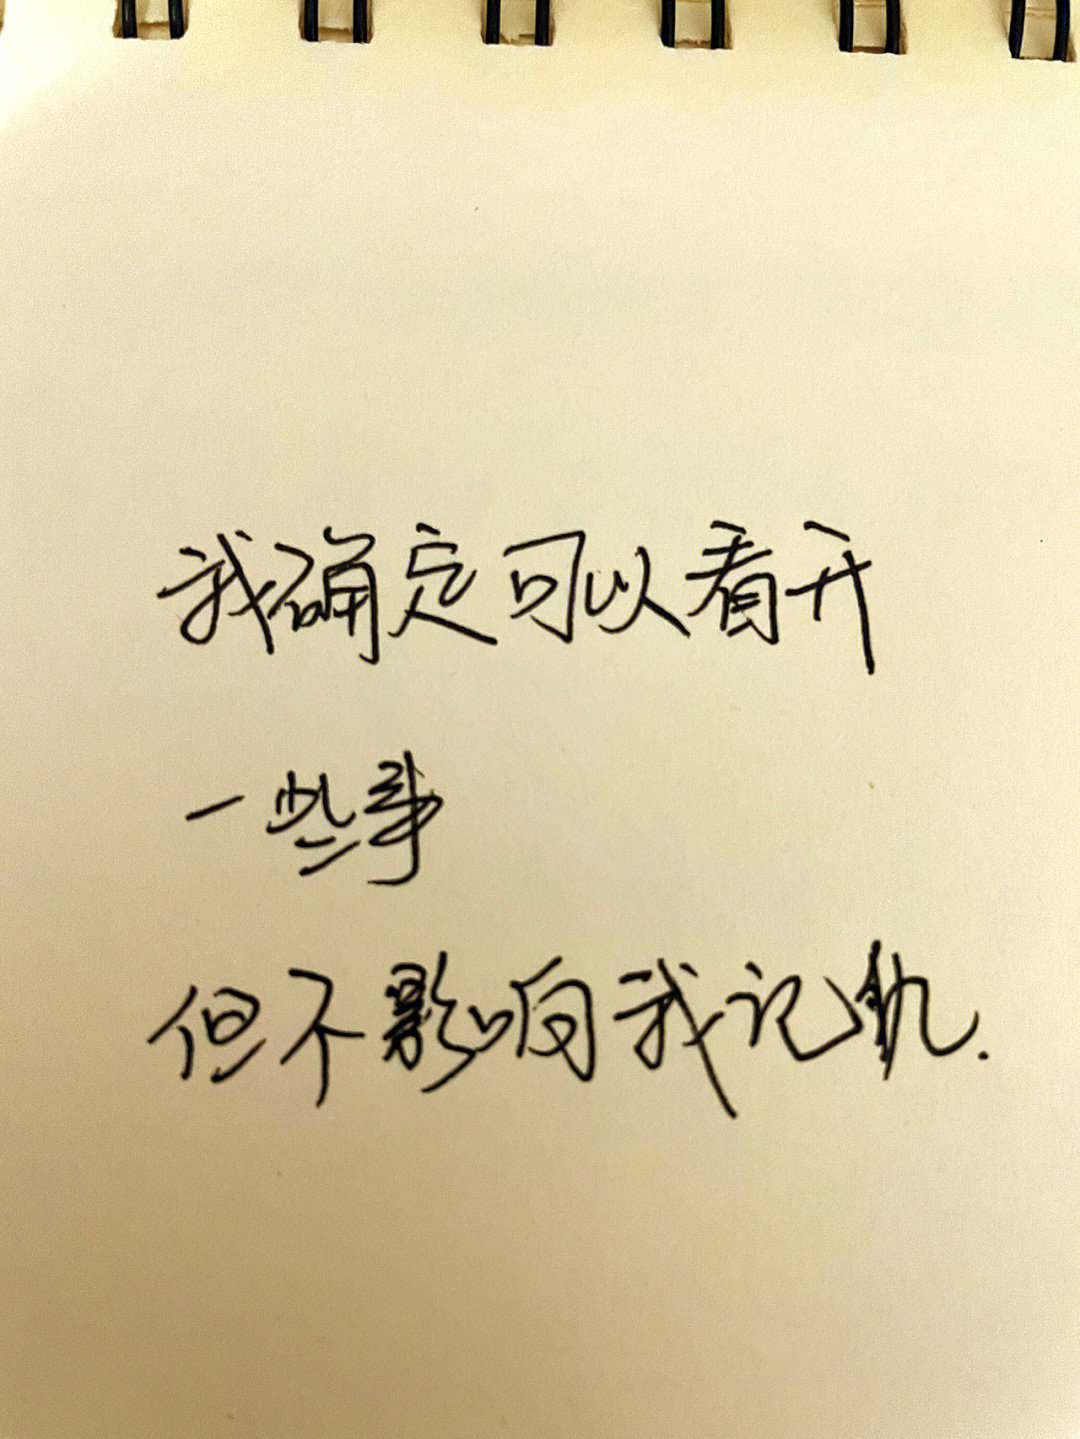 我确定可以看开
一些事
但不影响我记仇.